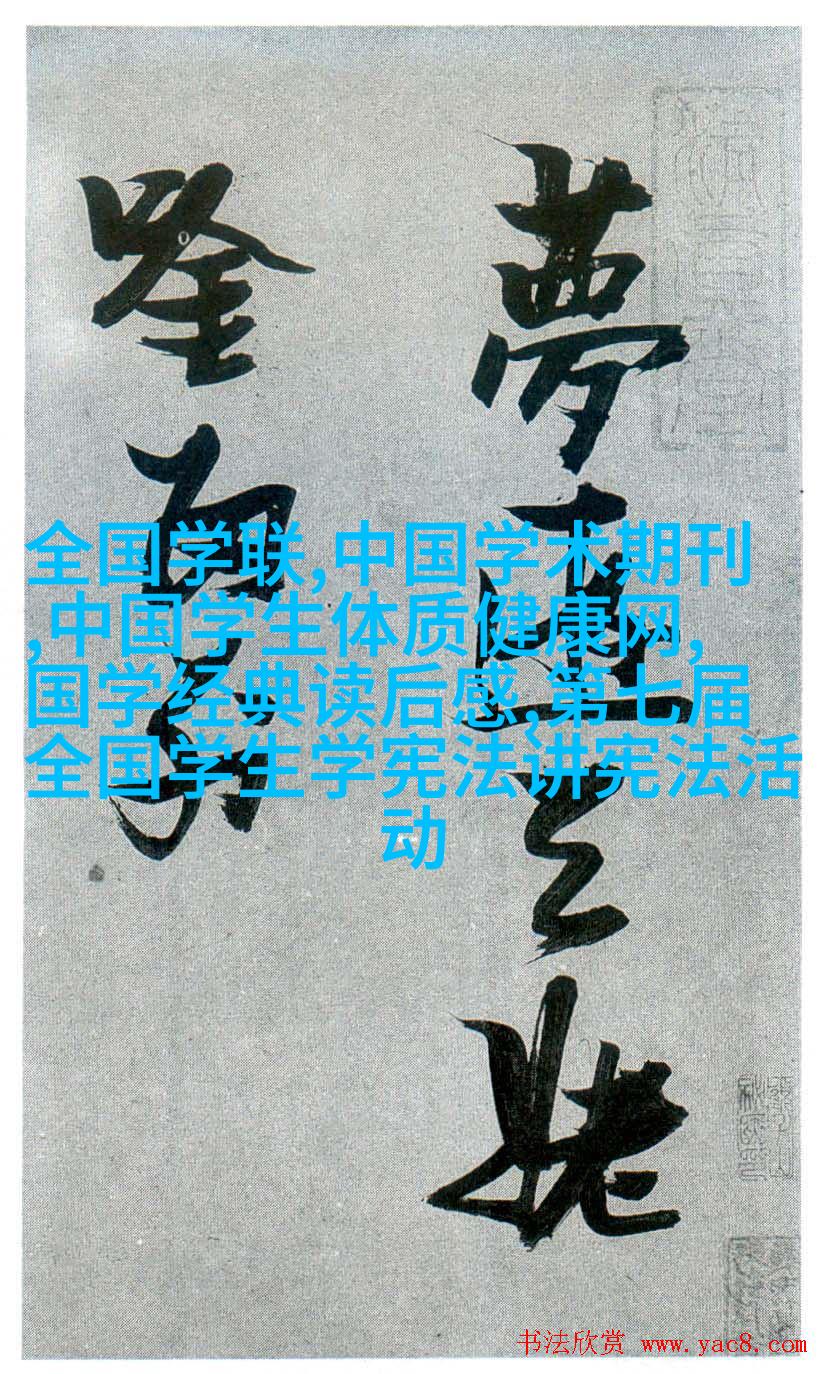 夢遊天姥
唫留别
全国学联,中国学术期刊
,中国学生体质健康网,
国学经典读后感,第七届
全国学生学宪法讲宪法活
动
书法欣赏 www.yac8.com